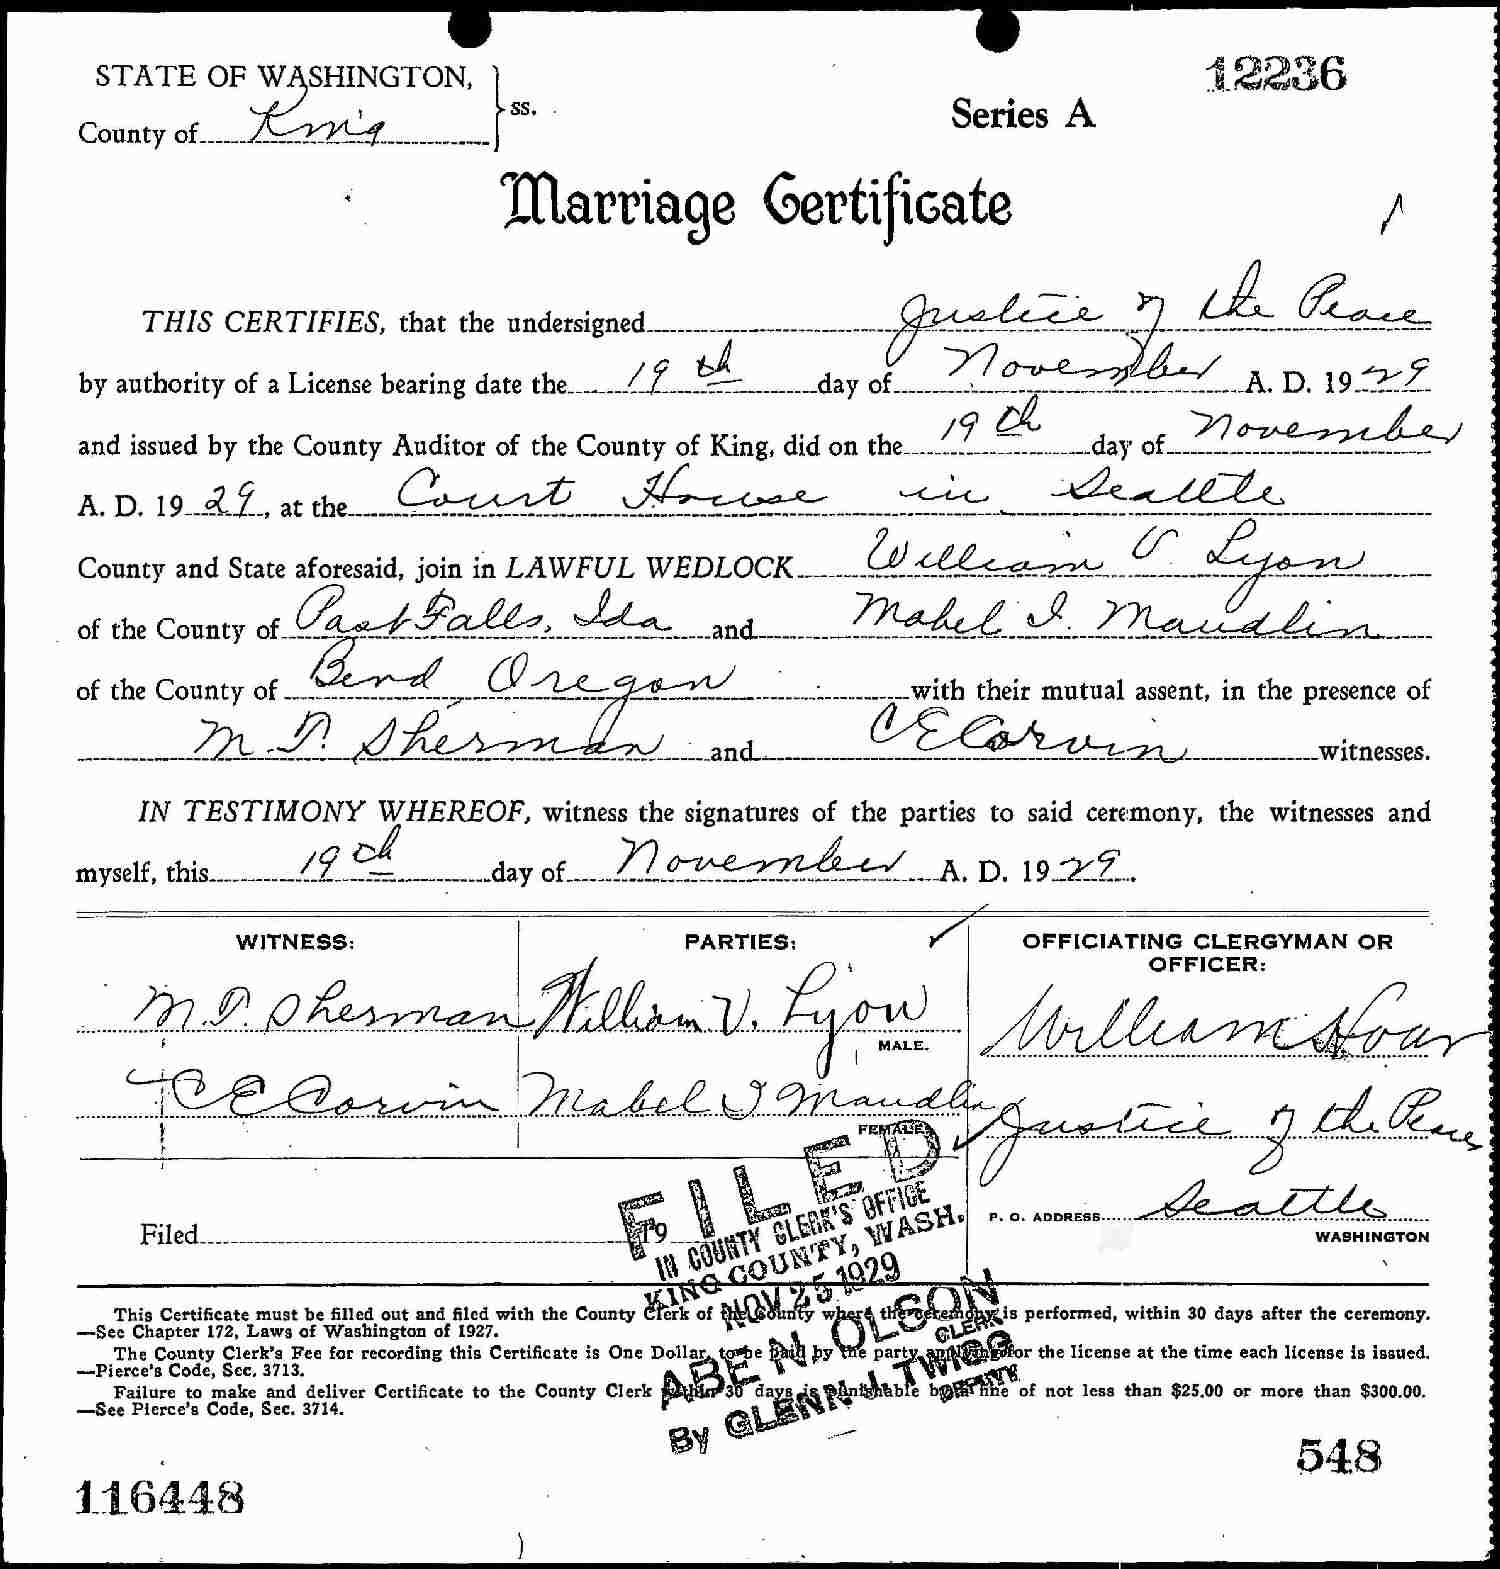 12236
STATE OF WASHINGTON,
County of King ss.
Series A
Marriage Certificate
THIS CERTIFIES, that the undersigned Justice of the Peace
by authority of a License bearing date the 19th day of November A. D. 1929
and issued by the County Auditor of the County of King, did on the 19th day of November
A. D. 1929, at the Court House in Seattle
County and State aforesaid, join in LAWFUL WEDLOCK William V. Lyon
of the County of Post Falls, Ida and Mabel I. Maudlin
of the County of Bend Oregon with their mutual assent, in the presence of
M. T. Sherman and C E Corvin witnesses.
IN TESTIMONY WHEREOF, witness the signatures of the parties to said ceremony, the witnesses and
myself, this 19th day of November A. D. 1929.
WITNESS: PARTIES: OFFICIATING CLERGYMAN OR
OFFICER:
M. T. Sherman William V. Lyon William Hoar
MALE.
C E Corvin Mabel I Maudlin Justice of the Peace
FEMALE
P. O. ADDRESS Seattle
WASHINGTON
Filed 19
FILED
IN COUNTY CLERK'S OFFICE
KING COUNTY, WASH.
NOV 25 1929
ABE N. OLSON
CLERK
By GLENN J. TWIGG
DEPUTY
This Certificate must be filled out and filed with the County Clerk of the County where the ceremony is performed, within 30 days after the ceremony.
—See Chapter 172, Laws of Washington of 1927.
The County Clerk's Fee for recording this Certificate is One Dollar, to be paid by the party applying for the license at the time each license is issued.
—Pierce's Code, Sec. 3713.
Failure to make and deliver Certificate to the County Clerk within 30 days is punishable by a fine of not less than $25.00 or more than $300.00.
—See Pierce's Code, Sec. 3714.
548
116448